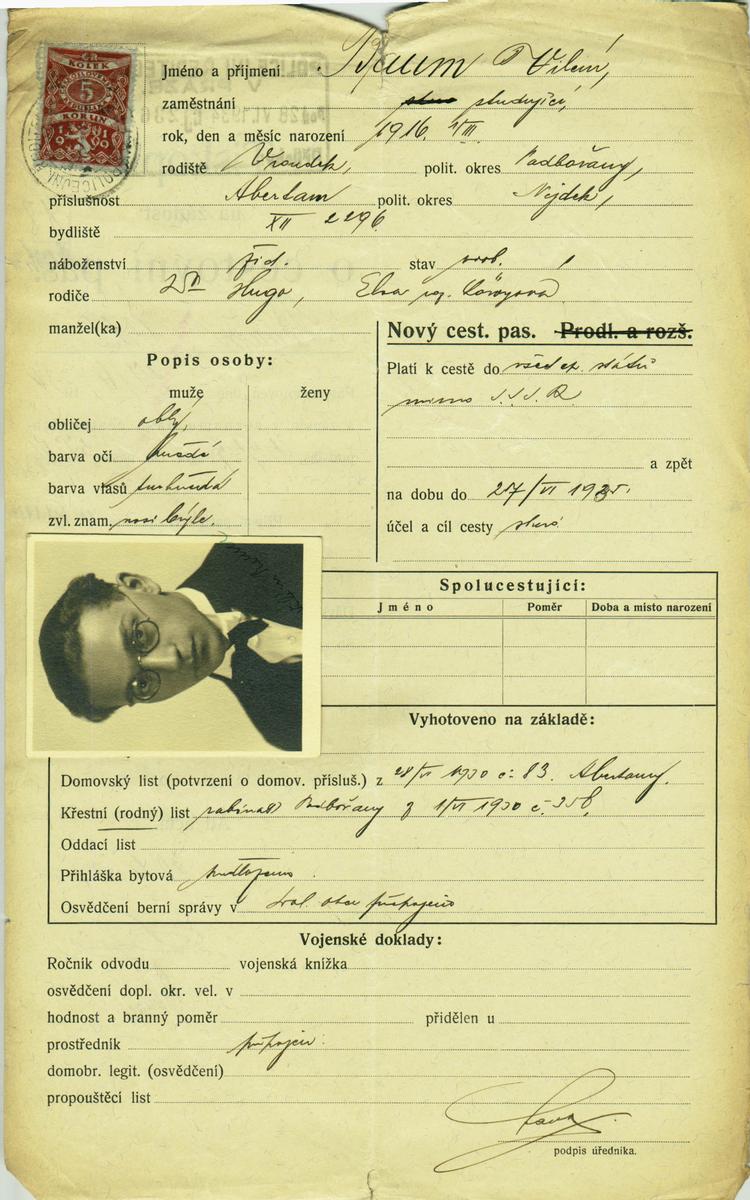 KOLEK
5
KORUN
19 19
Jméno a příjmení Baum Vilém,
zaměstnání studující,
rok, den a měsíc narození 1916.
rodiště Vroudek, polit. okres Podbořany,
příslušnost Abertam polit. okres Nejdek,
bydliště XII 2296.
náboženství žid. stav svob.
rodiče Hugo, Elsa roz.
manžel(ka)
Nový cest. pas. Prodl. a rozš.
Popis osoby:
Platí k cestě do všech ev. států
muže ženy
mimo S.S.S.R.
obličej oblý,
barva očí hnědé
a zpět
barva vlasů tm hnědá
na dobu do 27/VI 1935.
zvl. znam. nosí brýle.
účel a cíl cesty
Spolucestující:
Jméno Poměr Doba a místo narození
Vyhotoveno na základě:
Domovský list (potvrzení o domov. přísluš.) z 28/VI 1930 č. 83. Abertamy.
Křestní (rodný) list rabinát Podbořany z 1/VI 1930 č. 358,
Oddací list
Přihláška bytová předloženo
Osvědčení berní správy v připojeno
Vojenské doklady:
Ročník odvodu vojenská knížka
osvědčení dopl. okr. vel. v
hodnost a branný poměr přidělen u
prostředník připojen
domobr. legit. (osvědčení)
propouštěcí list
podpis úředníka.